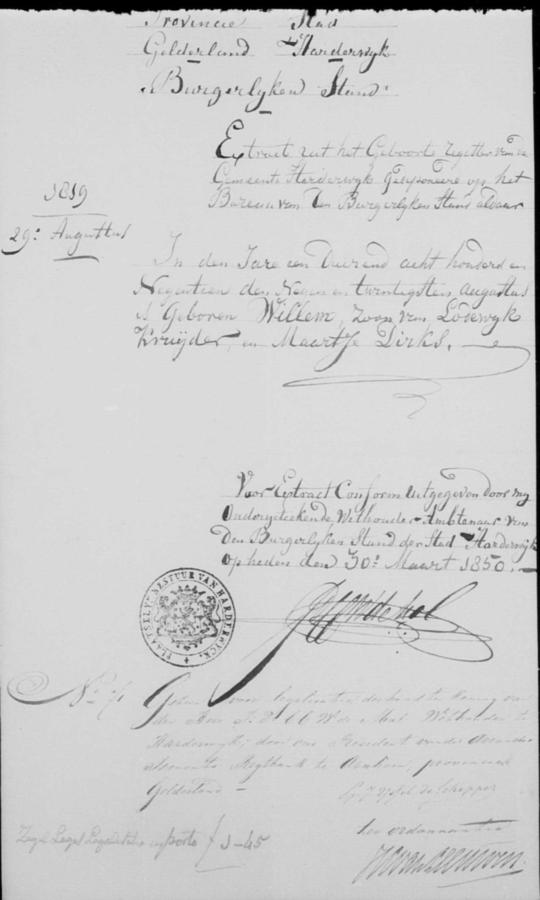 Provincie Stad
Gelderland Harderwyk
Burgerlyken Stand
Extract uit het Geboorte register van de
Gemeente Harderwyk Gedeponeerd op het
Bureau van den Burgerlyken Stand aldaar
1819
29e Augustus
In den Jare een Duizend acht honderd en
Negentien den Negen en twintigsten augustus
is Geboren Willem, Zoon van Lodewyk
Kruijder, en Maartje Dirks.
Voor Extract Conform uitgegeven door my
Ondergeteekende Wethouder Ambtenaar van
Den Burgerlyken Stand der Stad Harderwyk
op heden den 30e Maart 1850.
PLAATSELYK BESTUUR VAN HARDERWYCK
No 71
Gezien voor legalisatie der handteekening van
den Heer Wethouder te
Harderwyk, door ons President van de Arrondis
sements Regtbank te Arnhem, provincie
Gelderland
de Schepper
ter ordonnantie
Zegel Legalisatie en porto f 1-45